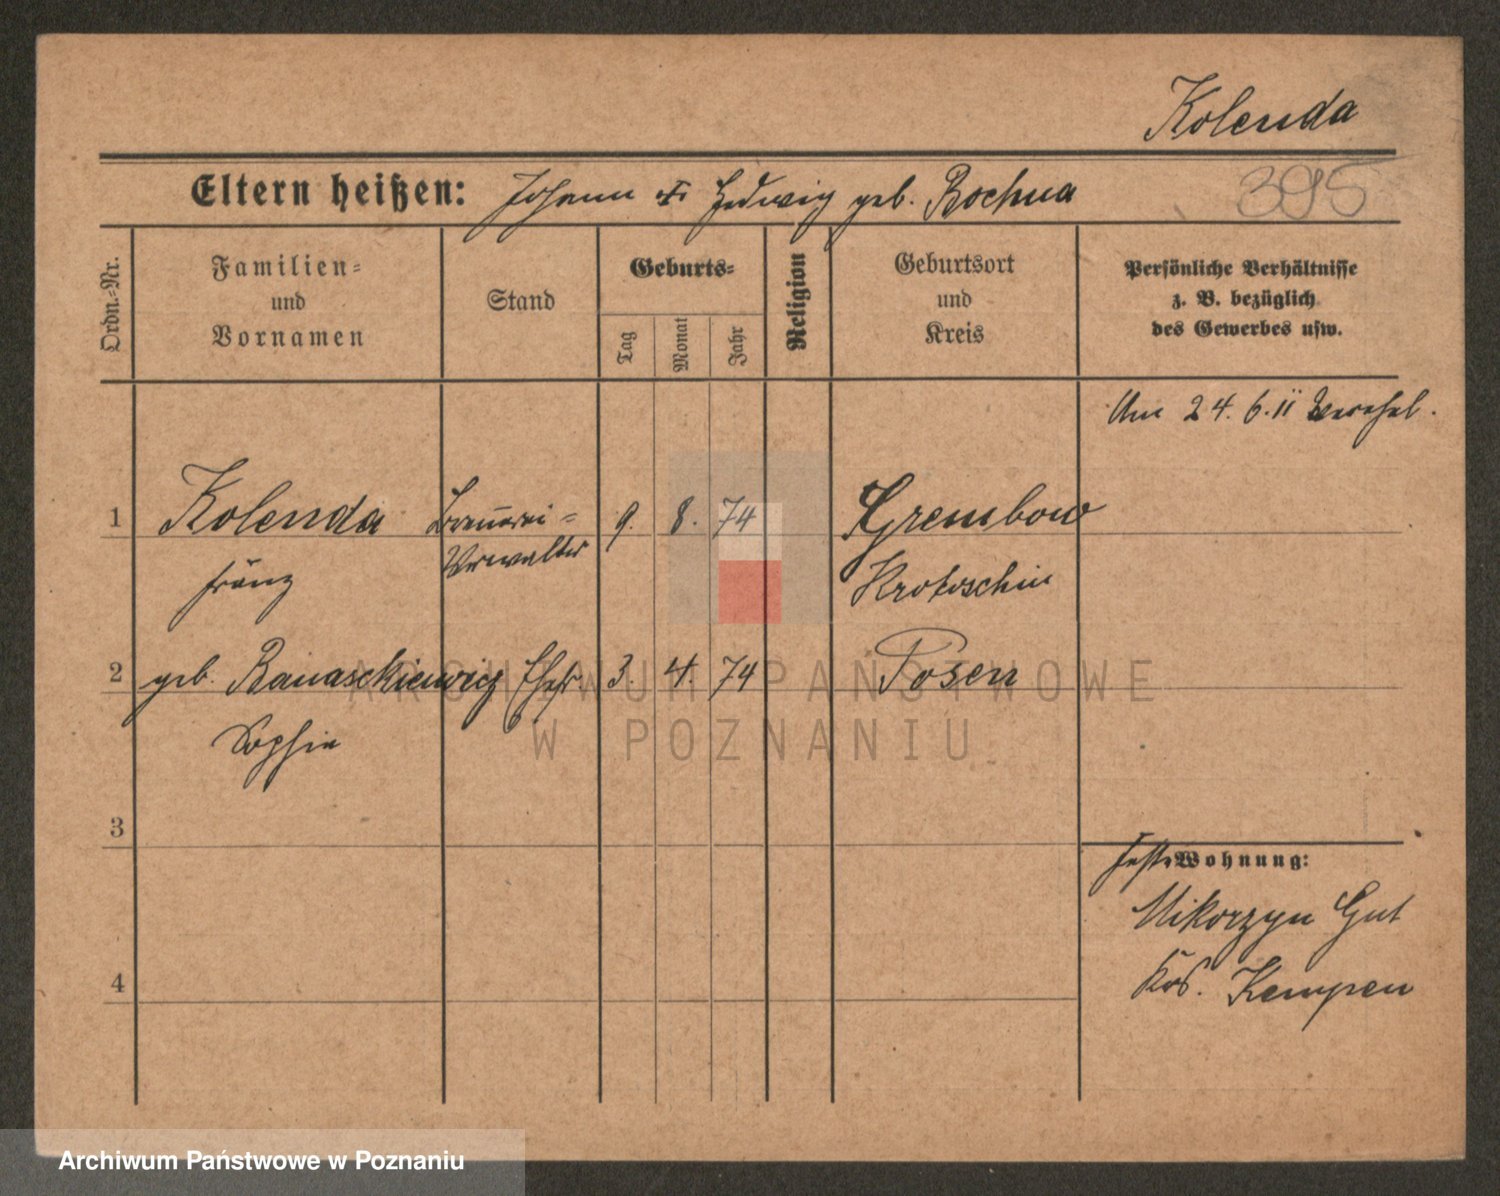 Kolenda
Eltern heißen: Johann u. Hedwig geb. Bochna
395
Ordn.-Nr.
Familien-
und
Vornamen
Stand
Geburts-
Tag
Monat
Jahr
Religion
Geburtsort
und
Kreis
Persönliche Verhältnisse
z. B. bezüglich
des Gewerbes usw.
Am 24. 6. 11
1 Kolenda Brauerei- 9. 8. 74 Grembow
Franz Verwalter Krotoschin
2 geb. Banaschiewicz Ehefr. 3. 4. 74 Posen
Sophie
3
Wohnung:
Mikorzyn Gut
4
Krs. Kempen
ARCHIWUM PAŃSTWOWE
W POZNANIU
Archiwum Państwowe w Poznaniu